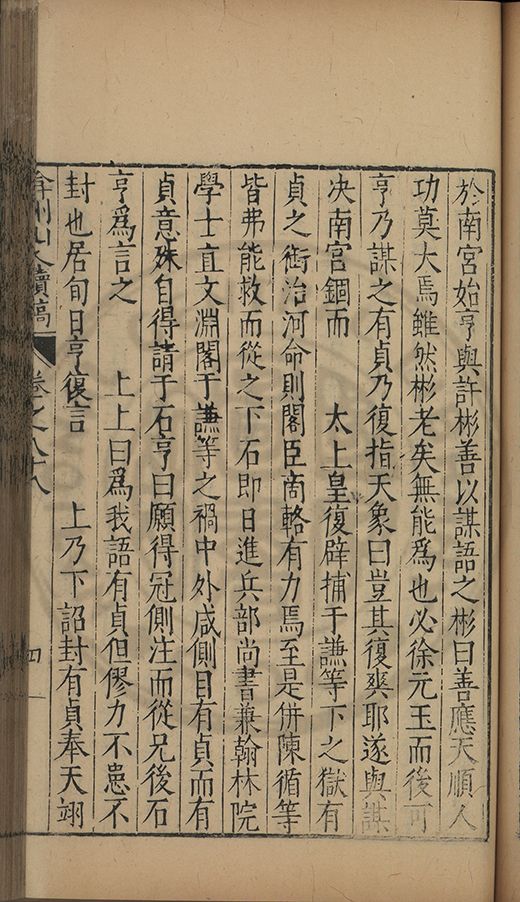 於南宮始亨與許彬善以謀語之彬曰善應天順人
功莫大焉雖然彬老矣無能爲也必徐元玉而後可
亨乃謀之有貞乃復指天象曰豈其復爽耶遂與謀
决南宮錮而　太上皇復辟捕于謙等下之獄有
貞之徃治河命則閣臣商輅有力焉至是併陳循等
皆弗能救而從之下石即日進兵部尚書兼翰林院
學士直文淵閣于謙等之禍中外咸側目有貞而有
貞意殊自得請于石亨曰願得冠側注而從兄後石
亨爲言之　上上曰爲我語有貞但僇力不患不
封也居旬日亨復言　上乃下詔封有貞奉天翊
弇州山人續稿　卷之八十八　四